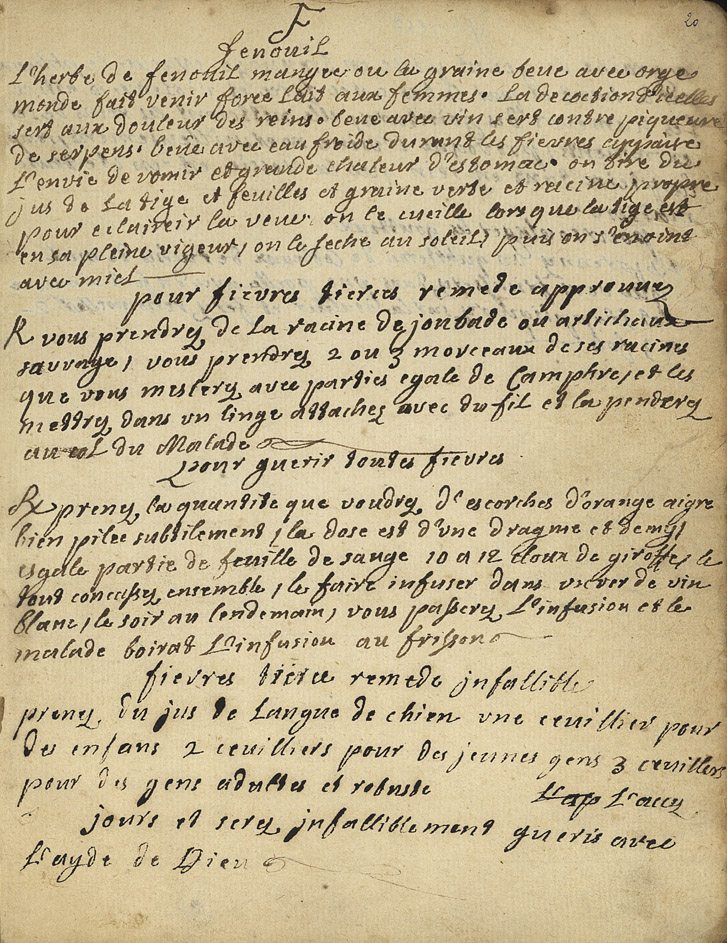 20
F
fenouil
L'herbe de fenouil mangee ou la graine beue avec orge
monde fait venir force Lait aux femmes. La decoction d'icelles
sert aux douleur des reins. beue avec vin sert contre piqueure
de serpens. beue avec eau froide durant les fievres appaise
L'envie de vomir et grande chaleur d'estomac. on tire du
jus de La tige et feuilles et graine verte et racine propre
pour eclaircir la veue, on le cueille lors que la tige est
en sa pleine vigeur, on le seche au soleil, puis on s'enoint
avec miel
pour fievres tierces remede approuvez
R vous prendrez de La racine de joubade ou artichaux
sauvage, vous prendrez 2 ou 3 morceaux de ses racines
que vous meslerez avec parties egale de Camphre, et les
mettrez dans un linge attachez avec du fil et la penderez
au col du Malade
pour guerir toutes fievres
Rx prenez la quantité que voudrez d'escorches d'orange aigre
bien pilée subtilement, la dose est d'une dragme et demy,
esgale partie de feuille de sauge 10 a 12 cloux de giroffe, le
tout concassez ensemble, le faire infuser dans un ver de vin
blanc, le soir au lendemain, vous passerez L'infusion et le
malade boirat L'infusion au frisson
fievres tierce remede jnfallible
prenez du jus de Langue de chien une ceuillier pour
des enfans 2 ceuilliers pour des jeunes gens 3 ceuilliers
pour des gens adultes et robuste
jours et serez jnfalliblement gueris avec
L'ayde de Dieu